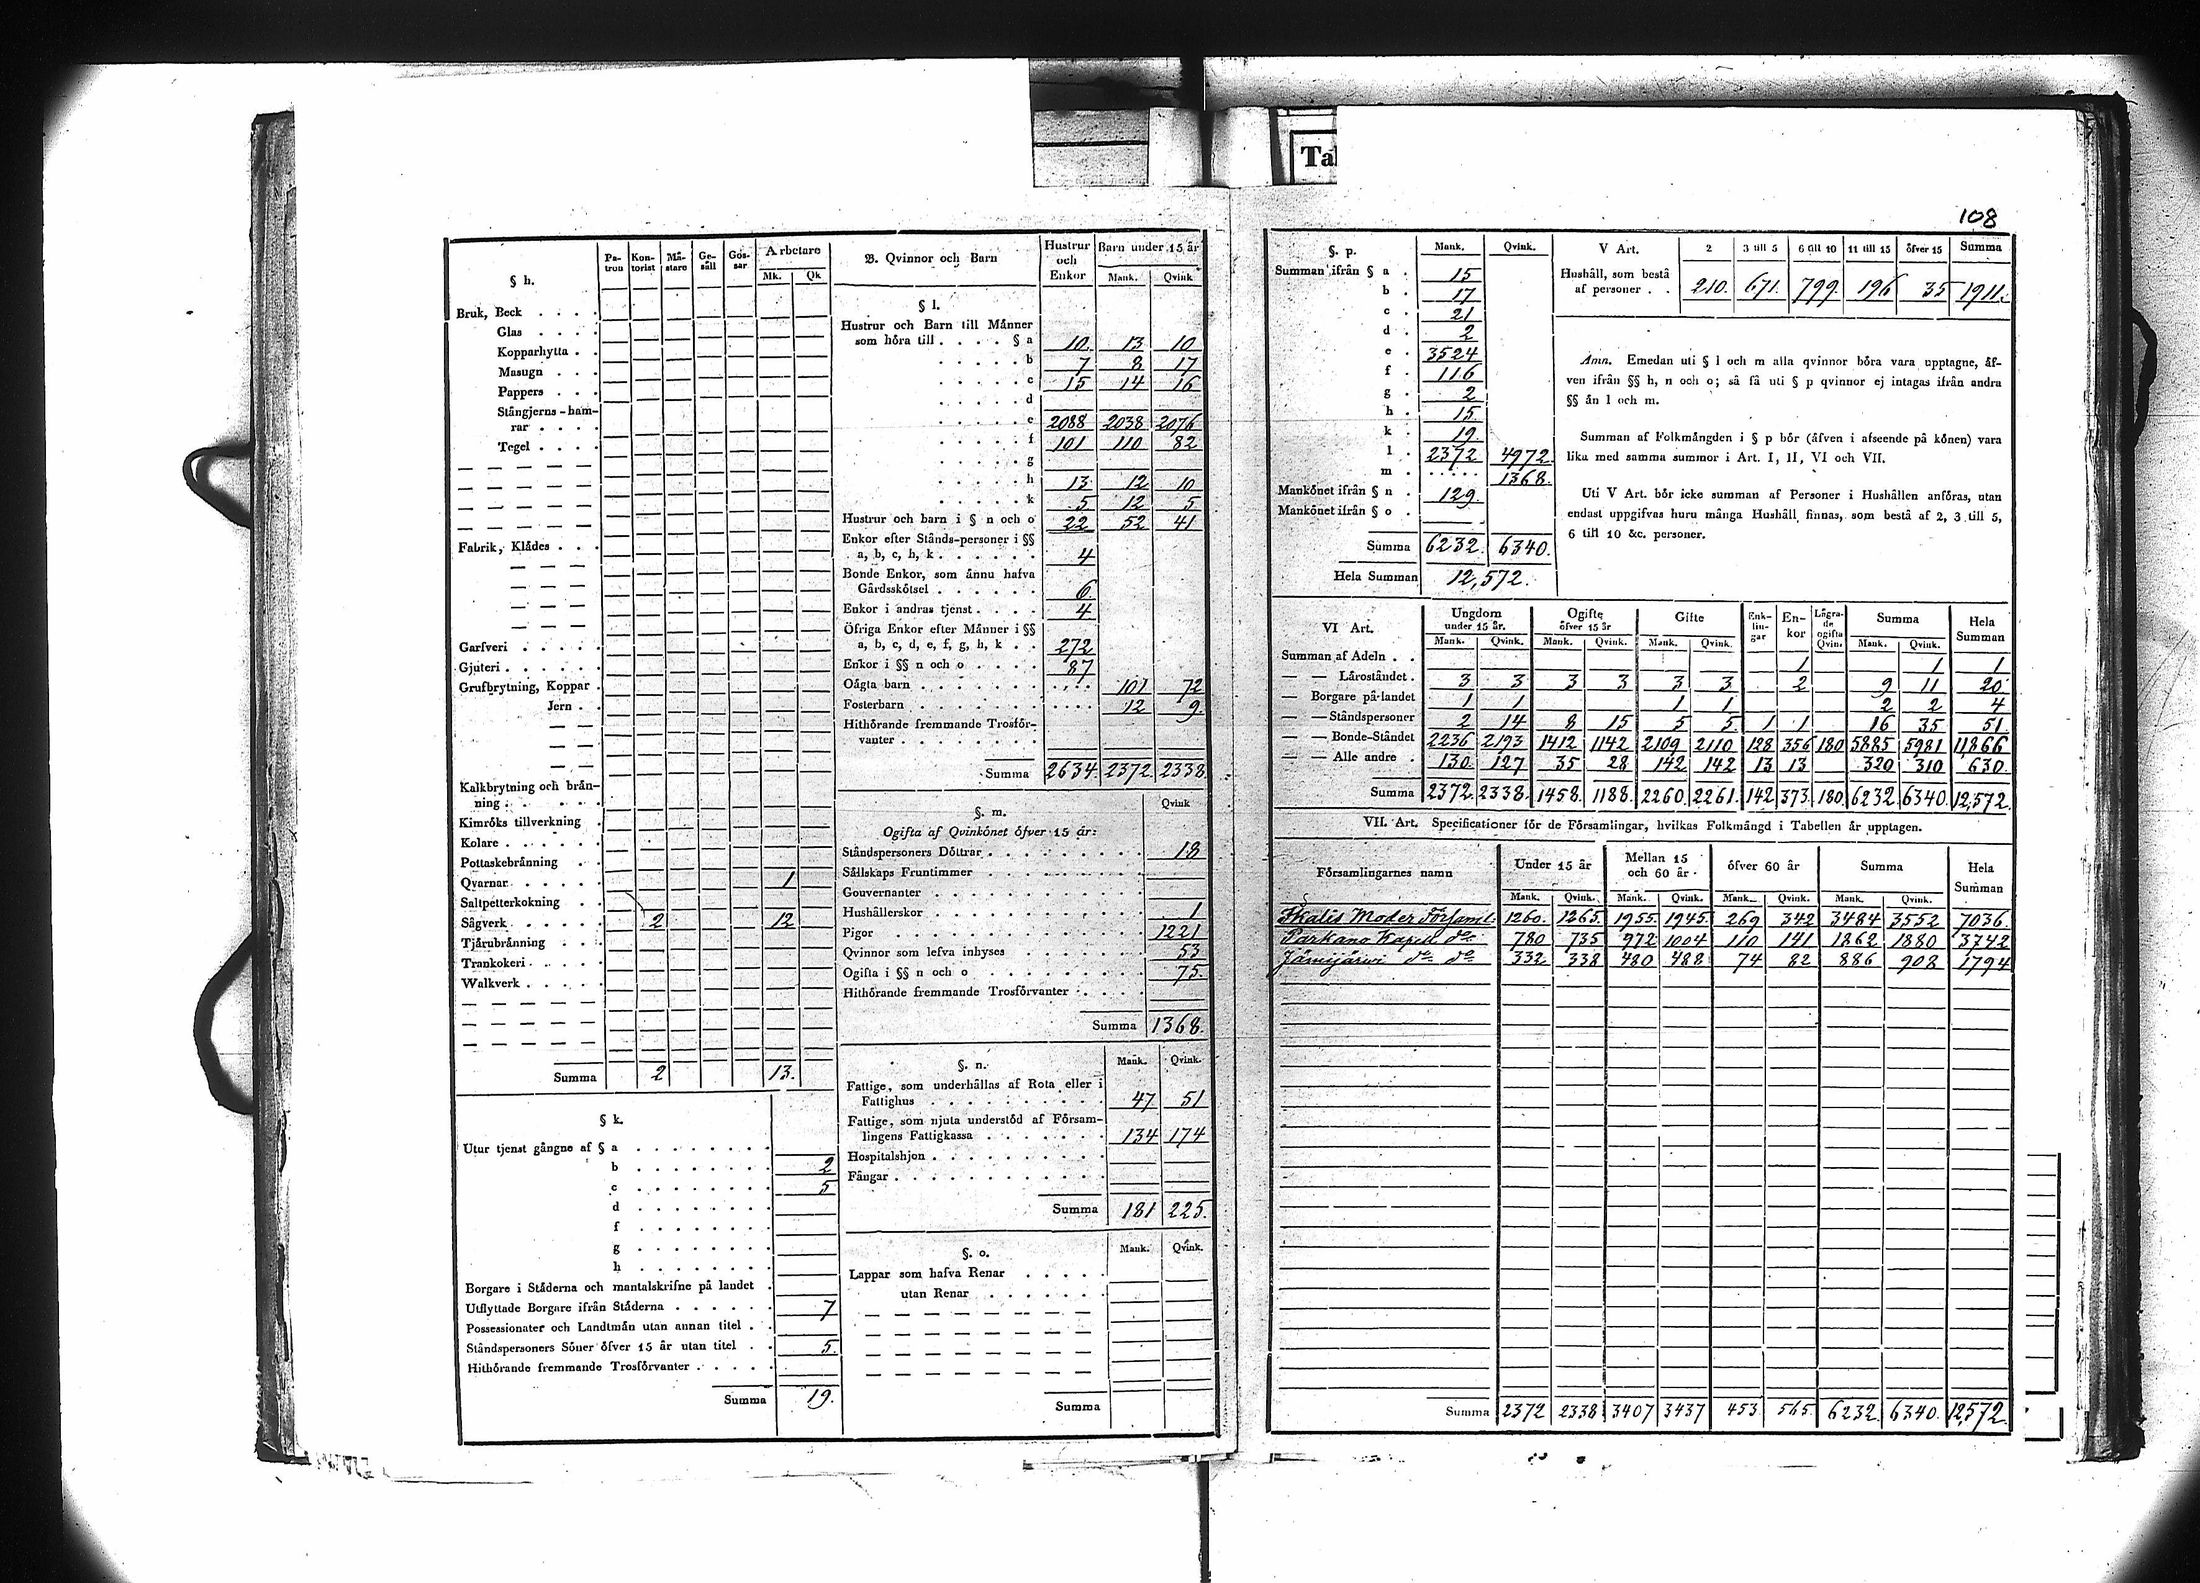 Ta
108
§ h.
Pa-tron Kon-torist Må-stare Ge-säll Gos-sar Arbetare
Mk. Qk
Bruk, Beck . . . .
Glas . . . .
Kopparhytta . .
Masugn . . .
Pappers . . .
Stångjerns-ham-
rar . . . .
Tegel . . . .
Fabrik, Klådes . . .
Garfveri . . . . .
Gjuteri . . . . . .
Grufbrytning, Koppar .
Jern . .
Kalkbrytning och brån-
ning . . . . . .
Kimröks tillverkning .
Kolare . . . . . .
Pottaskebränning . .
Qvarnar . . . . . 1
Saltpetterkokning . .
Sågverk . . . . . 2 12
Tjårubränning . . .
Trankokeri . . . .
Walkverk . . . . .
Summa 2 13.
§ k.
Utur tjenst gångne af § a . . . . . . . .
b . . . . . . . . 2
c . . . . . . . . 5
d . . . . . . . .
f . . . . . . . .
g . . . . . . . .
h . . . . . . . .
Borgare i Ståderna och mantalskrifne på landet .
Utflyttade Borgare ifrån Ståderna . . . . . . 7
Possessionater och Landtmån utan annan titel . .
Ståndspersoners Söner öfver 15 år utan titel . . 5.
Hithörande fremmande Trosförvanter . . . . .
Summa 19.
B. Qvinnor och Barn
Hustrur och Enkor Barn under 15 år
Mank. Qvink.
§ l.
Hustrur och Barn till Månner
som höra till . . . . § a 10. 13 10
b 7 8 17
c 15 14 16
d
e 2088 2038 2076
f 101 110 82
g
h 13 12 10
k 5 12 5
Hustrur och barn i § n och o 22 52 41
Enkor efter Stånds-personer i §§
a, b, c, h, k . . . . . . 4
Bonde Enkor, som ånnu hafva
Gårdsskötsel . . . . . . 6.
Enkor i andras tjenst . . . . 4
Öfriga Enkor efter Månner i §§
a, b, c, d, e, f, g, h, k . . 272
Enkor i §§ n och o . . . . 87
Oågta barn . . . . . . . . . . . . 101 72
Fosterbarn . . . . . . . . . . . . 12 9.
Hithörande fremmande Trosför-
vanter . . . . . . . . .
Summa 2634. 2372. 2338.
§. m.
Qvink
Ogifta af Qvinkönet öfver 15 år:
Ståndspersoners Döttrar . . . . . . . . . 18
Sållskaps Fruntimmer . . . . . . . . . .
Gouvernanter . . . . . . . . . . . .
Hushållerskor . . . . . . . . . . . . 1
Pigor . . . . . . . . . . . . . . 1221
Qvinnor som lefva inhyses . . . . . . . . 53
Ogifta i §§ n och o . . . . . . . . . . 75.
Hithörande fremmande Trosförvanter . . . .
Summa 1368.
§. n.
Mank. Qvink.
Fattige, som underhållas af Rota eller i
Fattighus . . . . . . . . . . 47 51
Fattige, som njuta understöd af Försam-
lingens Fattigkassa . . . . . . . 134 174
Hospitalshjon . . . . . . . . . .
Fångar . . . . . . . . . . . .
Summa 181 225.
§. o.
Mank. Qvink.
Lappar som hafva Renar . . . . .
utan Renar . . . . . . .
Summa
§. p. Mank. Qvink.
Summan ifrån § a . 15
b . 17
c . 21
d . 2
e . 3524
f . 116
g . 2
h . 15
k . 19
l . 2372 4972.
m . . . . . . 1368.
Mankönet ifrån § n . 129.
Mankönet ifrån § o .
Summa 6232. 6340.
Hela Summan 12,572.
V Art. 2 3 till 5 6 till 10 11 till 15 öfver 15 Summa
Hushåll, som bestå
af personer . . 210. 671. 799. 196 35 1911.
Anm. Emedan uti § l och m alla qvinnor böra vara upptagne, åf-
ven ifrån §§ h, n och o; så få uti § p qvinnor ej intagas ifrån andra
§§ ån l och m.
Summan af Folkmångden i § p bör (åfven i afseende på könen) vara
lika med samma summor i Art. I, II, VI och VII.
Uti V Art. bör icke summan af Personer i Hushållen anföras, utan
endast uppgifvas huru många Hushåll finnas, som bestå af 2, 3 till 5,
6 till 10 &c. personer.
VI Art. Ungdom under 15 år. Ogifte öfver 15 år Gifte Enk-lin-gar En-kor Lågra-de ogifta Qvin. Summa Hela Summan
Mank. Qvink. Mank. Qvink. Mank. Qvink. Mank. Qvink.
Summan af Adeln . . 1 1 1
— — Låroståndet . 3 3 3 3 3 3 2 9 11 20
— Borgare på landet 1 1 1 1 2 2 4
— — Ståndspersoner 2 14 8 15 5 5 1 1 16 35 51.
— — Bonde-Ståndet 2236 2193 1412 1142 2109 2110 128 356 180 5885 5981 11866
— — Alle andre . 130. 127 35 28 142 142 13 13 320 310 630.
Summa 2372. 2338. 1458. 1188. 2260. 2261. 142 373. 180. 6232. 6340. 12,572.
VII. Art. Specificationer för de Församlingar, hvilkas Folkmångd i Tabellen år upptagen.
Församlingarnes namn Under 15 år Mellan 15 och 60 år. öfver 60 år Summa Hela Summan
Mank. Qvink. Mank. Qvink. Mank. Qvink. Mank. Qvink.
Ikalis Moder Församl. 1260. 1265. 1955. 1945. 269 342 3484 3552 7036.
Parkano Kapell do 780 735 972 1004 110 141 1862 1880 3742
Jämijärvi do do 332 338 480 488 74 82 886 908 1794
Summa 2372 2338 3407 3437 453. 565. 6232. 6340. 12,572.